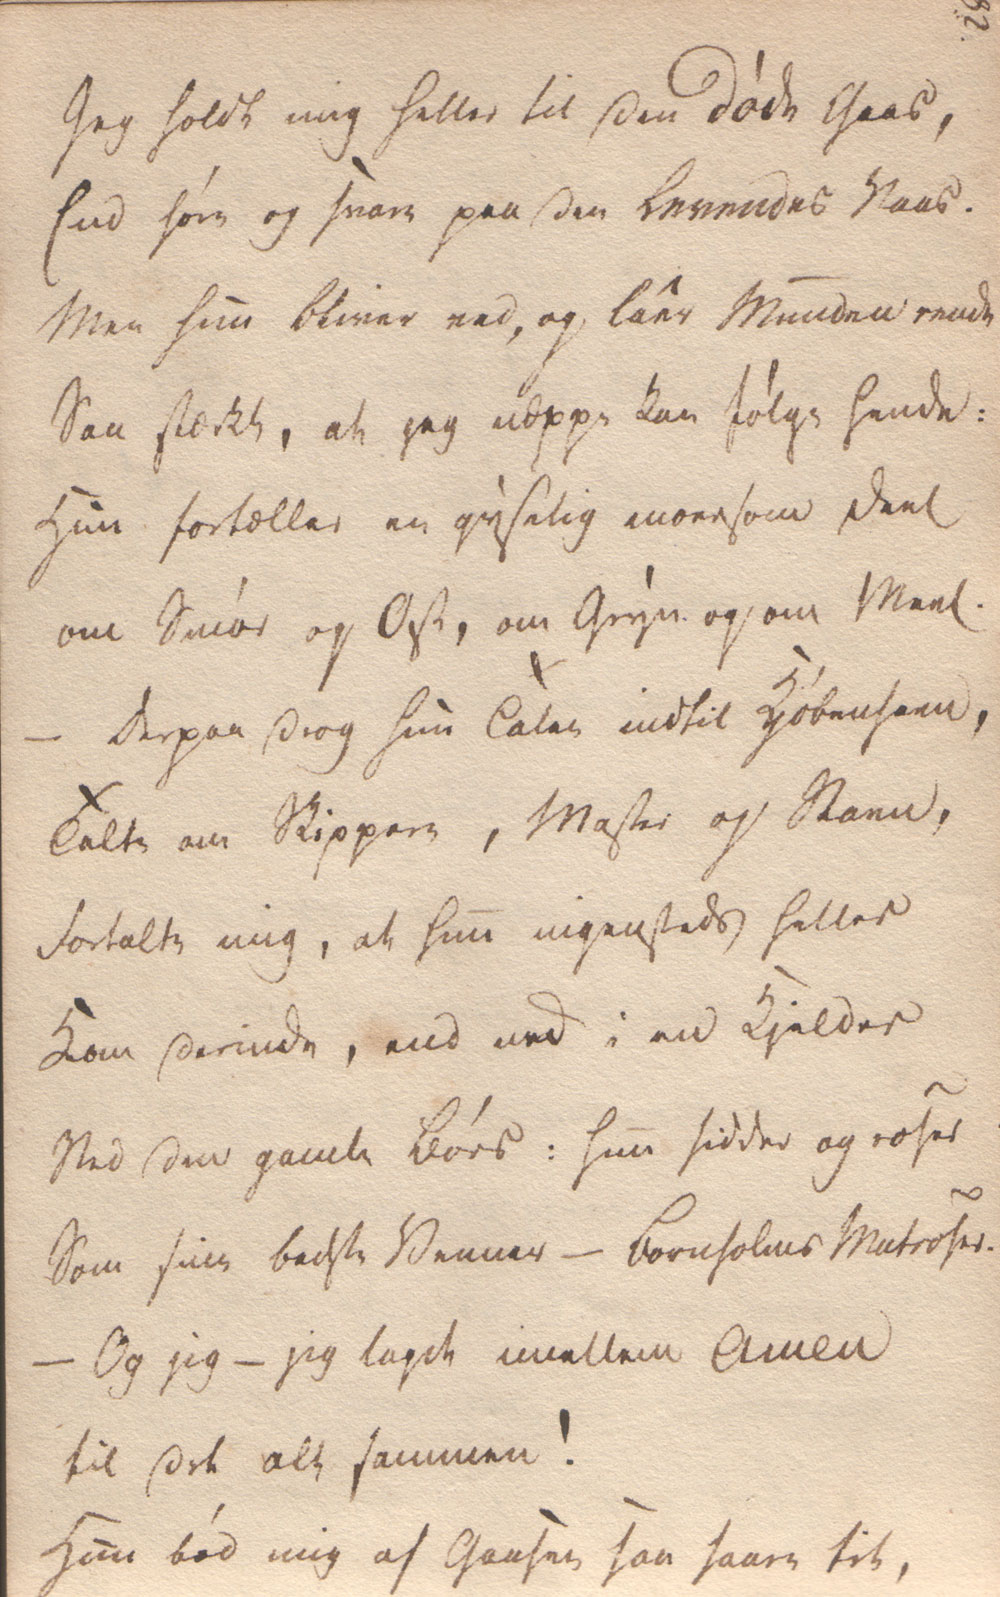 82.
Jeg holdt mig heller til den døde Gaas,
End høre og svare paa den Levendes Vaas.
Men hun bliver ved, og lâer Munden rende
Saa stærkt, at jeg næppe kan følge hende:
Hun fortæller en gyselig moersom Deel
om Smør og Ost, om Gryn og om Meel.
— Derpaa drog hun Talen indtil Kjøbenhavn,
Talte om Skippere, Master og Stavn,
fortalte mig, at hun ingensteds heller
Kom derinde, end ned i en Kjelder
Ved den gamle Børs: hun sidder og roser
Som sine bedste Venner — Bornholms Matroser.
— Og jeg — jeg lagde imellem Amen
til det alt sammen!
Hun bød mig af Gaasen saa saare tit,